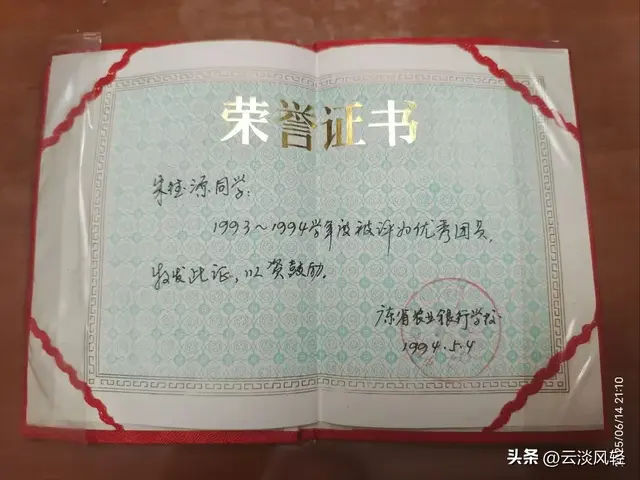 荣誉证书
宋德源同学:
1993~1994学年度被评为优秀团员,
特发此证,以资鼓励。
广东省农业银行学校
1994.5.4
2025/06/14 21:10
头条 @云淡风轻